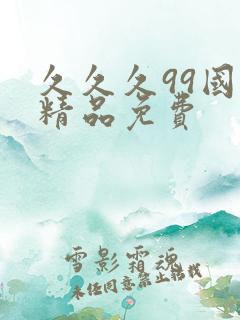 久久久99國
精品免費
雪影霜魂
未经同意禁止转载